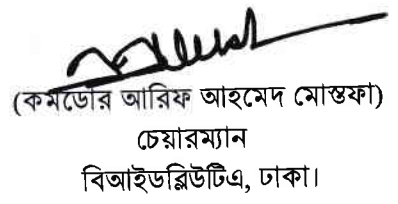 (কমডোর আরিফ আহমেদ মোস্তফা)
চেয়ারম্যান
বিআইডব্লিউটিএ, ঢাকা।